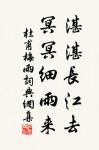 湛湛長江去
冥冥細雨来
杜甫梅雨詞典網集